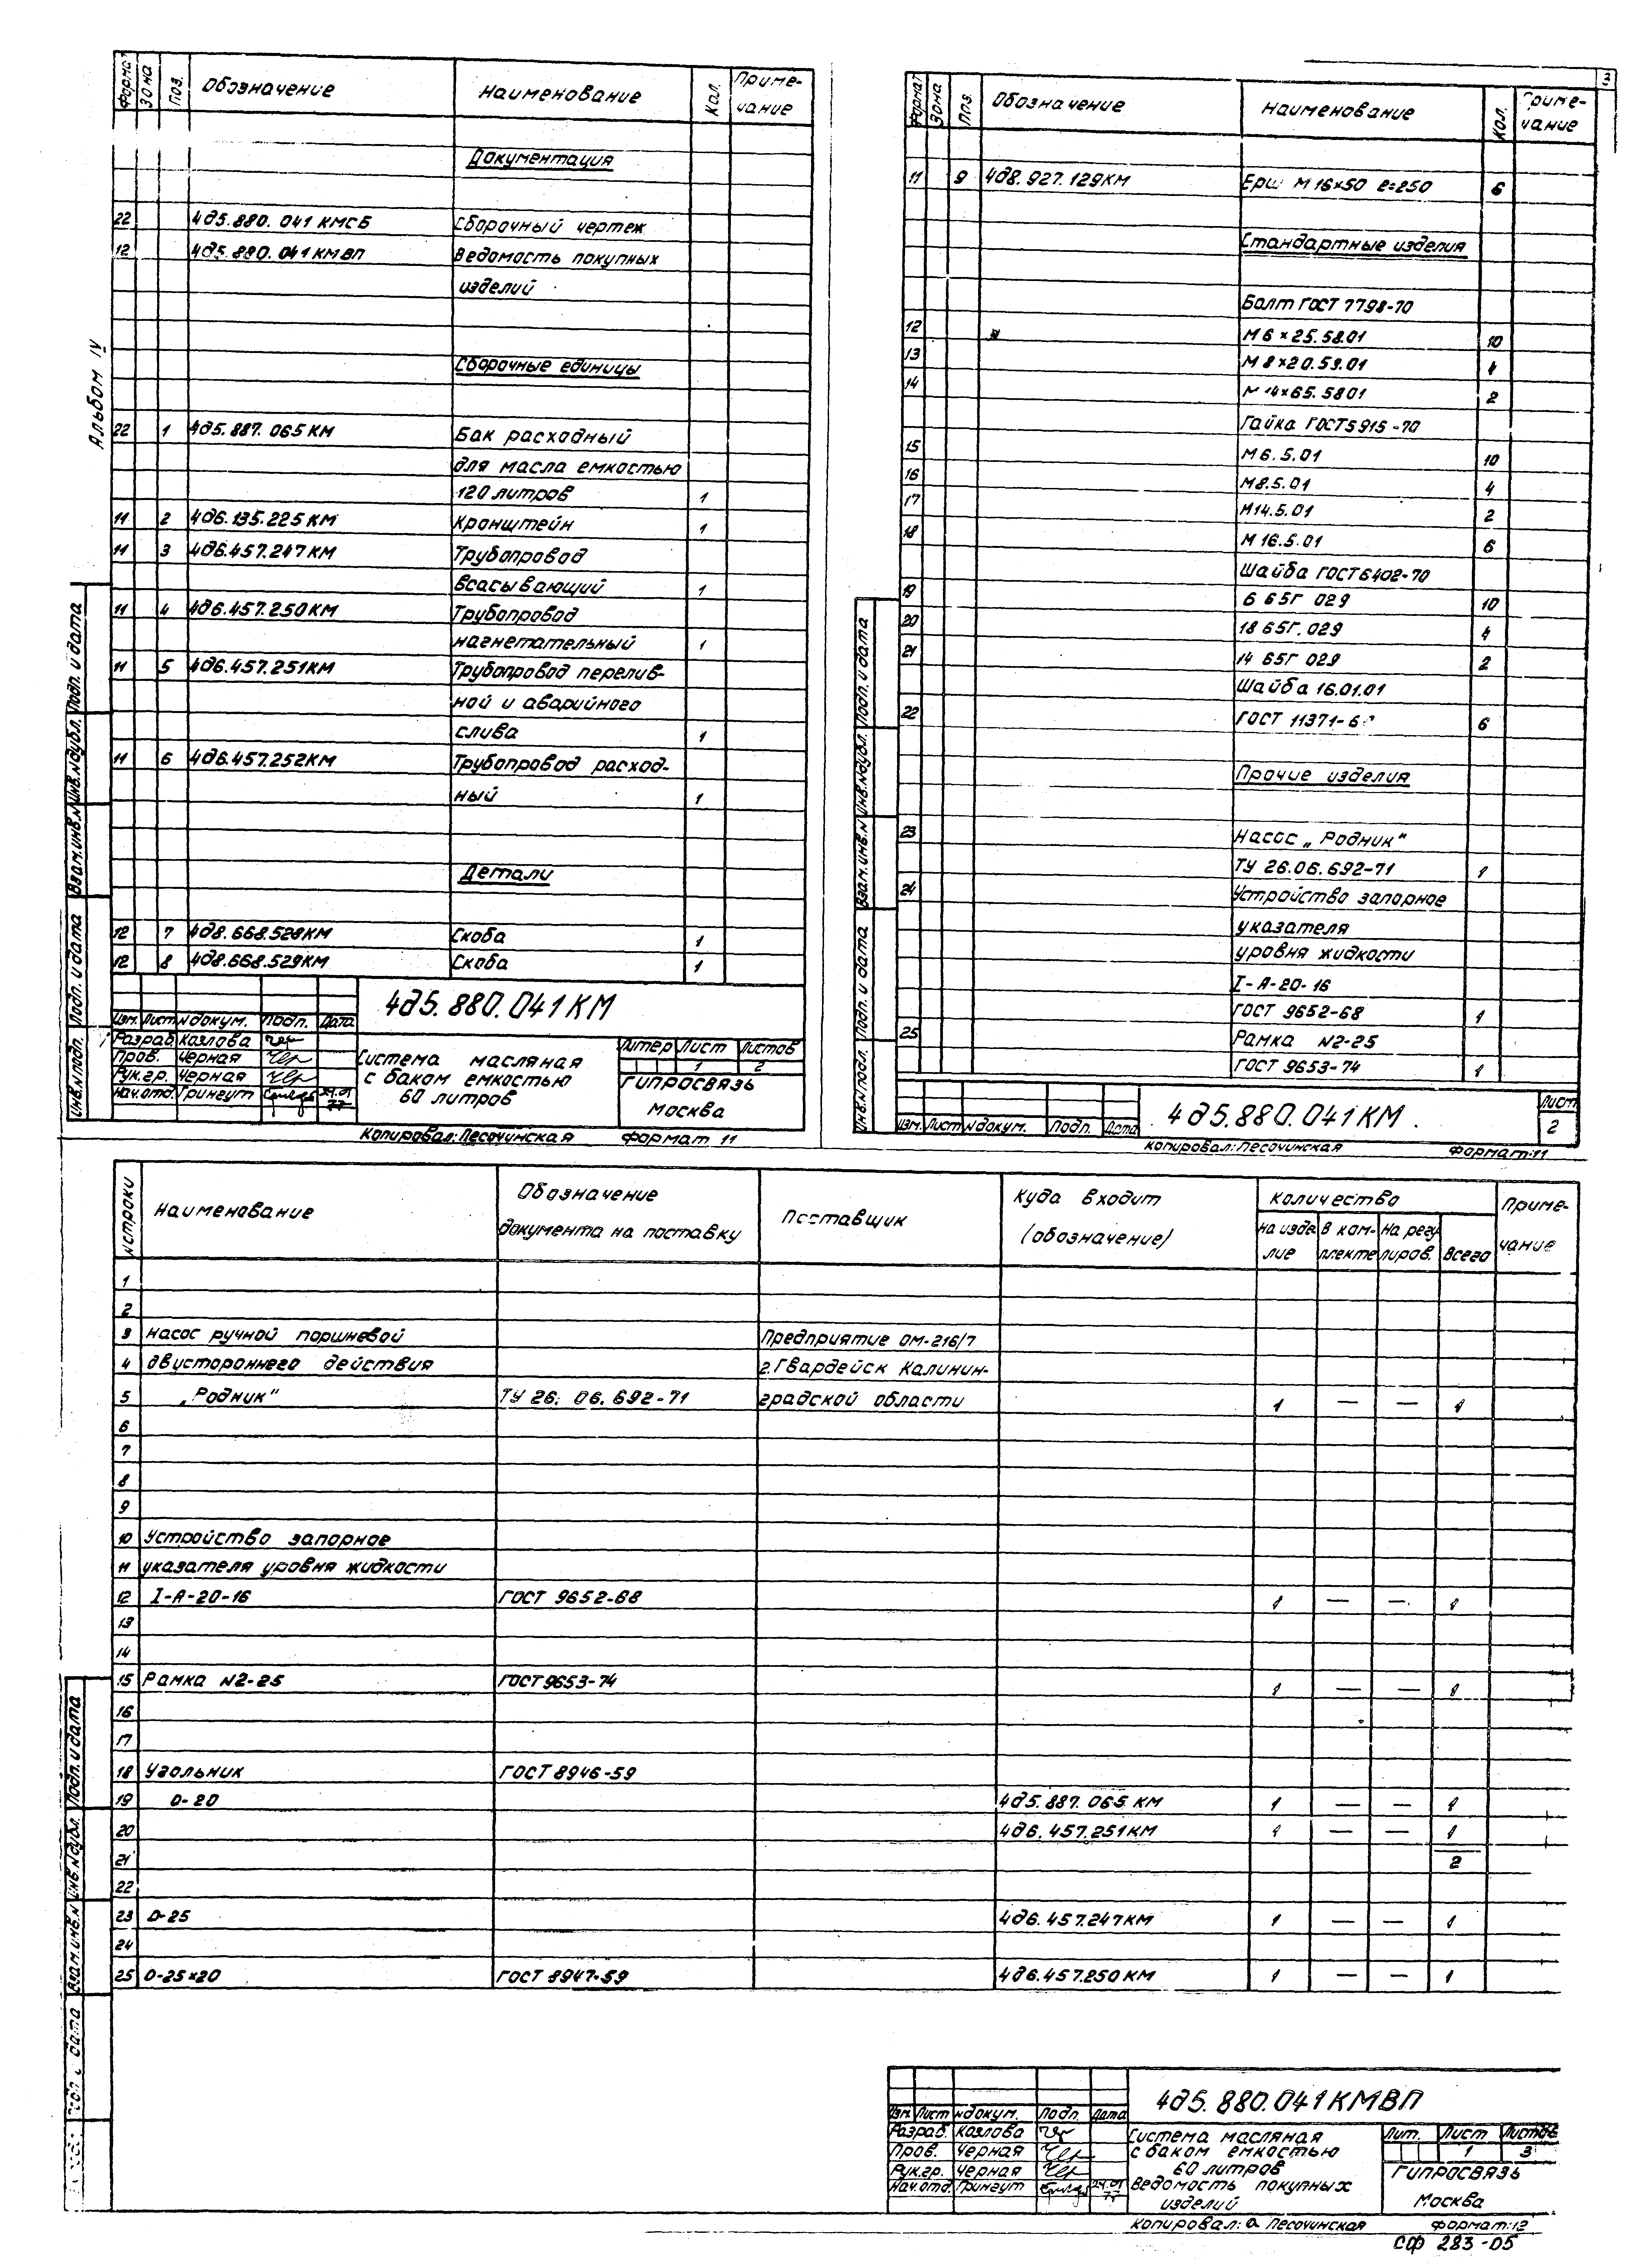 Альбом IV
Формат Зона Поз. Обозначение Наименование Кол. Приме-чание
Документация
22 4д5.880.041 КМСБ Сборочный чертеж
12 4д5.880.041 КМВП Ведомость покупных
изделий
Сборочные единицы
22 1 4д5.887.065 КМ Бак расходный
для масла емкостью
120 литров 1
11 2 4д6.135.225 КМ Кронштейн 1
11 3 4д6.457.247 КМ Трубопровод
всасывающий 1
11 4 4д6.457.250 КМ Трубопровод
нагнетательный 1
11 5 4д6.457.251 КМ Трубопровод перелив-
ной и аварийного
слива 1
11 6 4д6.457.252 КМ Трубопровод расход-
ный 1
Детали
12 7 4д8.668.528 КМ Скоба 1
12 8 4д8.668.529 КМ Скоба 1
Инв.N подл. Подп. и дата Взам.инв.N Инв.N дубл. Подп. и дата
4д5.880.041 КМ
Изм. Лист N докум. Подп. Дата
Разраб. Козлова
Пров. Черная
Рук.гр. Черная
Нач.отд. Грингут 24.01 77
Система масляная
с баком емкостью
60 литров
Литер Лист Листов
1 2
ГИПРОСВЯЗЬ
Москва
Копировал: Песочинская Формат 11
Формат Зона Поз. Обозначение Наименование Кол. Приме-чание
11 9 4д8.927.129 КМ Ерш М16×50 ℓ=250 6
Стандартные изделия
Болт ГОСТ 7798-70
12 М6×25.58.01 10
13 М8×20.58.01 4
14 М14×65.5801 2
Гайка ГОСТ 5915-70
15 М6.5.01 10
16 М8.5.01 4
17 М14.5.01 2
18 М16.5.01 6
Шайба ГОСТ 6402-70
19 6 65Г 029 10
20 18 65Г.029 4
21 14 65Г 029 2
Шайба 16.01.01
22 ГОСТ 11371-6 6
Прочие изделия
23 Насос „Родник"
ТУ 26.06.692-71 1
24 Устройство запорное
указателя
уровня жидкости
I-А-20-16
ГОСТ 9652-68 1
25 Рамка N2-25
ГОСТ 9653-74 1
Инв.N подл. Подп. и дата Взам.инв.N Инв.N дубл. Подп. и дата
Изм. Лист N докум. Подп. Дата
4д5.880.041 КМ.
Лист
2
Копировал: Песочинская Формат: 11
N строки Наименование Обозначение документа на поставку Поставщик Куда входит (обозначение) Количество на изделие В комплекте На регулиров. Всего Приме-чание
1
2
3 Насос ручной поршневой Предприятие ОМ-216/7
4 двустороннего действия г.Гвардейск Калинин-
5 „Родник" ТУ 26.06.692-71 градской области 1 — — 1
6
7
8
9
10 Устройство запорное
11 указателя уровня жидкости
12 I-А-20-16 ГОСТ 9652-68 1 — — 1
13
14
15 Рамка N2-25 ГОСТ 9653-74 1 — — 1
16
17
18 Угольник ГОСТ 8946-59
19 О-20 4д5.887.065 КМ 1 — — 1
20 4д6.457.251 КМ 1 — — 1
21 2
22
23 О-25 4д6.457.247 КМ 1 — — 1
24
25 О-25×20 ГОСТ 8947-59 4д6.457.250 КМ 1 — — 1
дата Взам.инв.N Инв.N дубл. Подп. и дата
4д5.880.041 КМВП
Изм. Лист N докум. Подп. Дата
Разраб. Козлова
Пров. Черная
Рук.гр. Черная
Нач.отд. Грингут 24.01 77
Система масляная
с баком емкостью
60 литров
Ведомость покупных
изделий
Лит. Лист Листов
1 3
ГИПРОСВЯЗЬ
Москва
Копировал: Песочинская Формат: 12
СФ 283-05